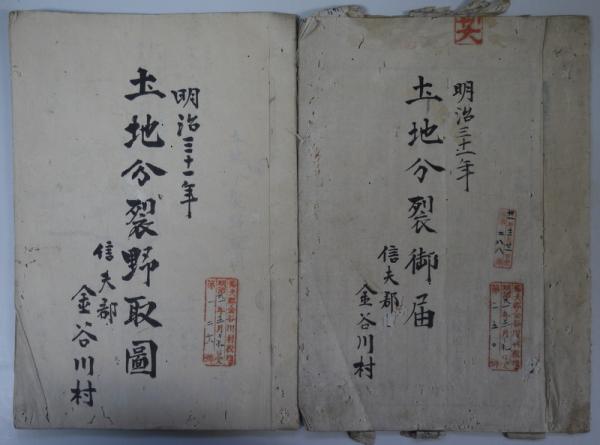 明治三十一年
土地分裂野取圖
信夫郡
金谷川村
明治三十一年
土地分裂御届
信夫郡
金谷川村